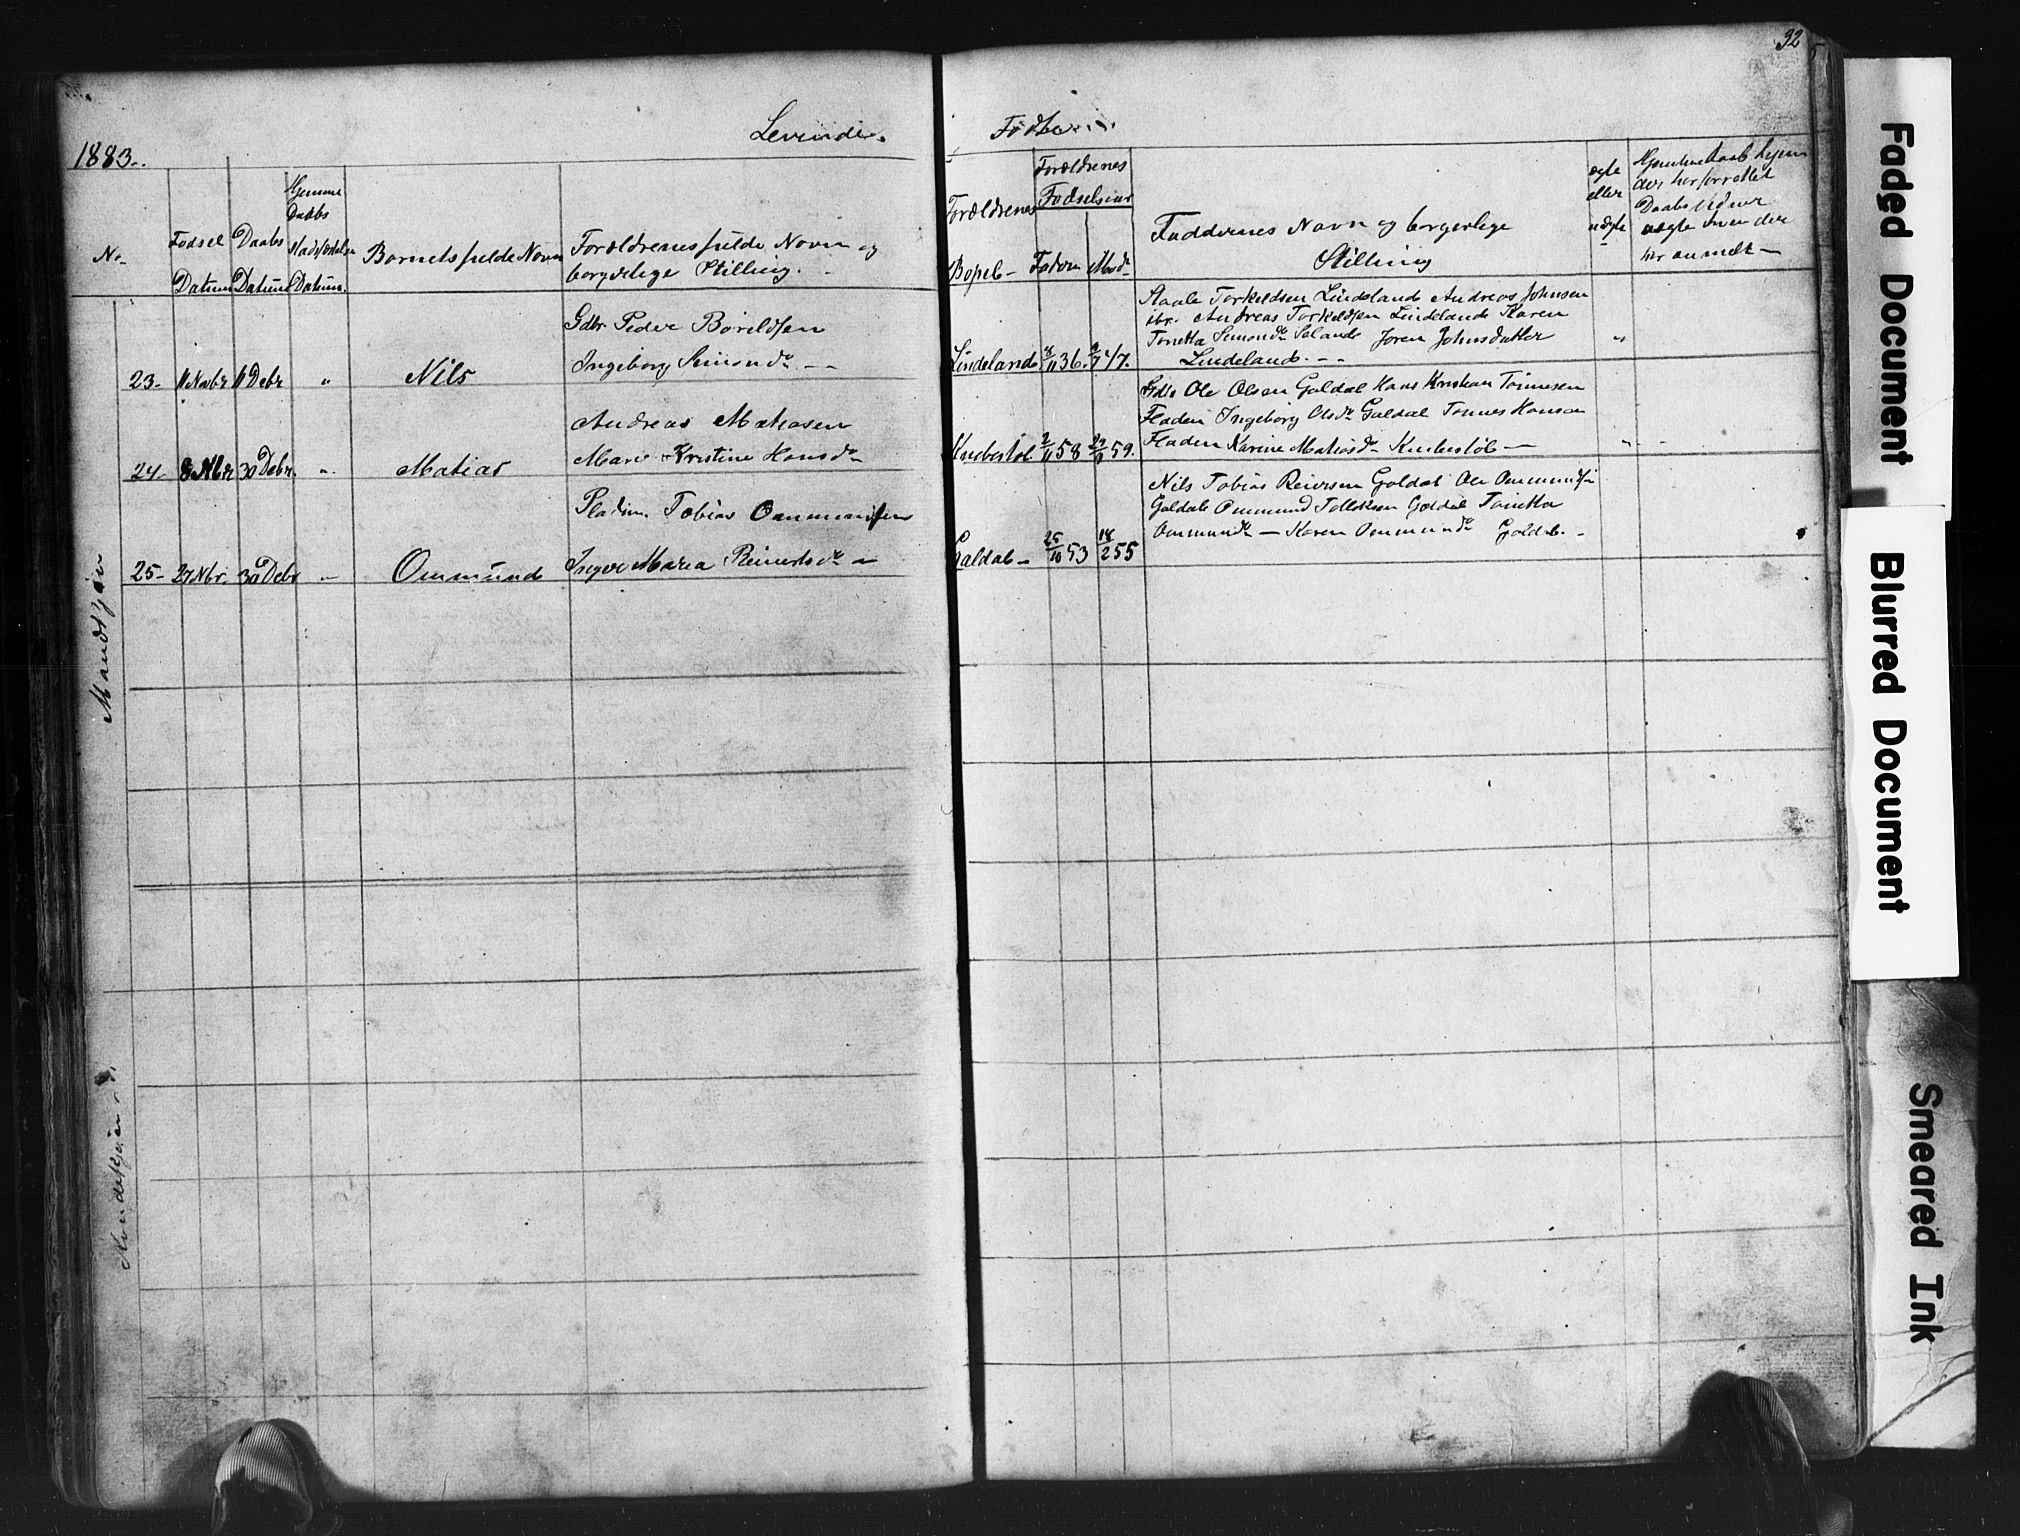 32
1883.
Levende
Fødte
No
Fødsel Datum
Daabs Datum
Hjemme Daabs Stadfæstelse Datum.
Barnets fulde Navn
Forældrenes fulde Navn og
borgerlige Stilling.
Forældrenes
Bopel
Forældrenes
Fødselsaar
Fadern
Mod
Faddernes Navn og borgerlige
Stilling
ægte
eller
uægte
Mandkjøn
23. 11 Novbr 11 Debr " Nils
Gdbr Peder Børildsen
Ingeborg Simonsd
Lindeland 36. 47.
Staale Torkeldsen Lindeland Andreas Johnsen
ibr. Andreas Torkeldsen Lindeland Karen
Tonetta Simonsd Seland Joren Johnsdatter
Lindeland.
24. 8 Nbr 30 Debr. " Matias
Andreas Matiasen
Marie Kristine Hansd
Knibestøl 2/11 58 59.
Gdbr Ole Olsen Galdal Hans Kristian Tønnesen
Fladen Ingeborg Olsd Galdal Tønnes Hansen
Fladen Karine Matiasd Knibestøl
25. 27 Nbr. 30 Debr " Ommund
Pladsm. Tobias Ommundsen
Inger Maria Reinertsd
Galdal 25/10 53 18/2 55
Nils Tobias Reiersen Galdal Ole Ommunds
Galdal Ommund Tollaksen Galdal Tonetta
Ommundsd Karen Ommundsd Galdal.
Kvindekjøn
Faded Document
Blurred Document
Smeared Ink